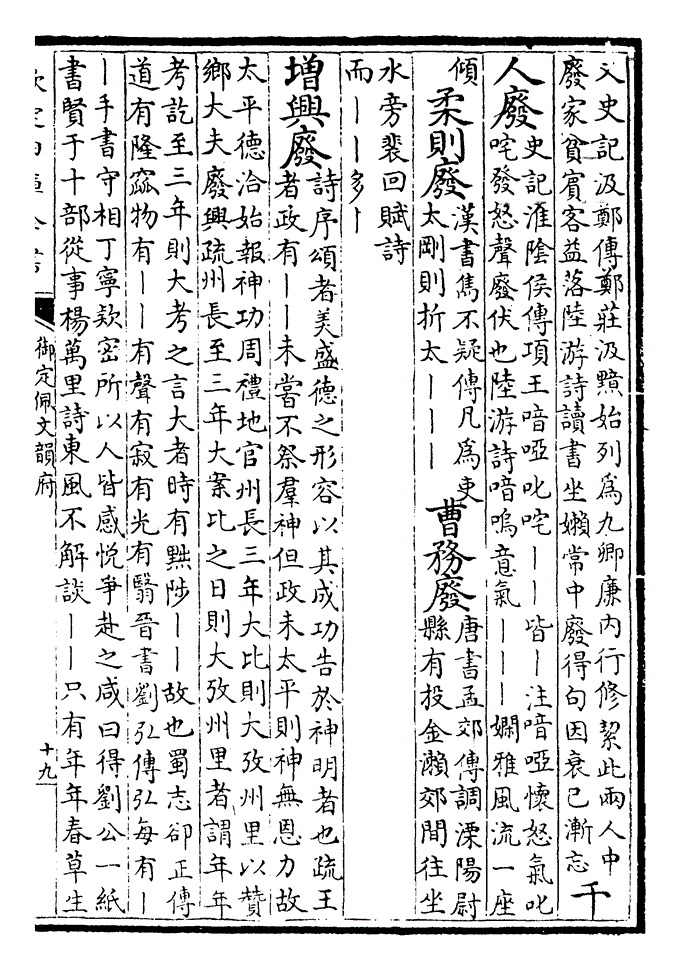 又史記汲鄭傳鄭莊汲黯始列爲九卿廉内行修絜此兩人中
廢家貧賓客益落陸游詩讀書坐嬾常中廢得句因衰已漸忘
千
人廢
史記淮陰侯傳項王喑啞叱咤——皆—注喑啞懷怒氣叱
咤發怒聲廢伏也陸游詩喑嗚意氣———嫻雅風流一座
傾
柔則廢
漢書雋不疑傳凡爲吏
太剛則折太———
曹務廢
唐書孟郊傳調溧陽尉
縣有投金瀨郊間往坐
水旁裴回賦詩
而——多—
增興廢
詩序頌者美盛德之形容以其成功告於神明者也疏王
者政有——未嘗不祭羣神但政未太平則神無恩力故
太平德洽始報神功周禮地官州長三年大比則大攷州里以贊
鄉大夫廢興疏州長至三年大案比之日則大攷州里者謂年年
考訖至三年則大考之言大者時有黜陟——故也蜀志郤正傳
道有隆窳物有——有聲有寂有光有翳晉書劉弘傳弘每有—
—手書守相丁寧欵密所以人皆感悦爭赴之咸曰得劉公一紙
書賢于十部從事楊萬里詩東風不解談——只有年年春草生
欽定四庫全書
御定佩文韻府
十九